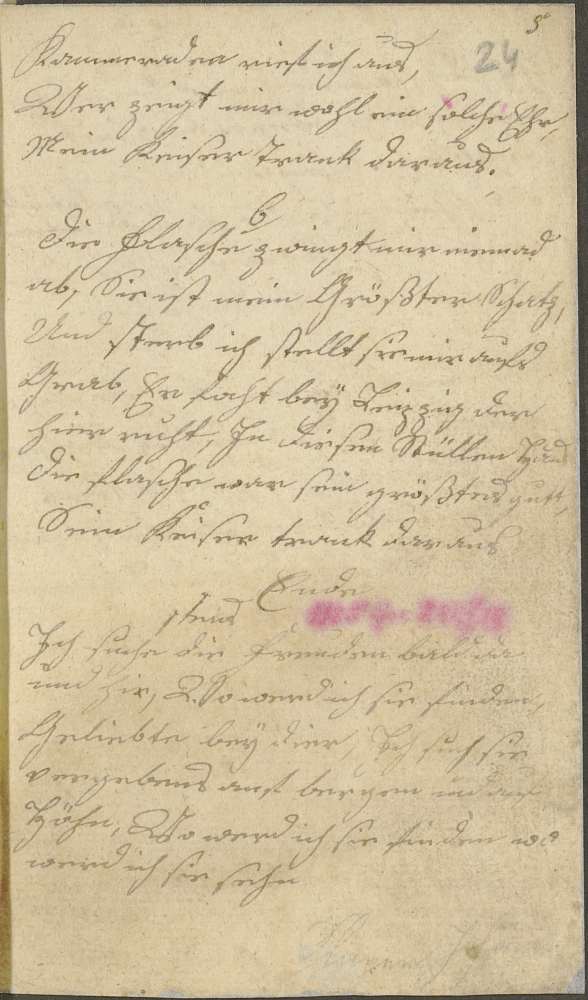 5
24
Kammeraden rief ich aus,
Wer zeigt mir wohl ein solche Ehr,
Mein Keiser Trank daraus.
6
Die Flasche zwingt mir niemad
ab, Sie ist mein Größter Schatz,
Und sterb ich stellt sie mir aufs
Grab, Er focht bey Leipzig der
hier ruht, In diesen Stüllen Hauß
Die flasche war sein größtes gutt,
Sein Keiser trank daraus
Ende
Ich suche die Freuden bald da
und hir, Wo werd ich sie finden,
Geliebte bey dier, Ich such sie
vergebens auf bergen und auf
Höhn, Wo werd ich sie finden wo
werd ich sie sehn